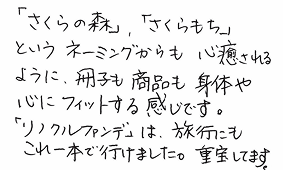 「さくらの森」,「さくらもち」
というネーミングからも 心癒される
ように、冊子も商品も身体や
心にフィットする感じです。
「リノクルファンデ」は、旅行にも
これ一本で行けました。重宝してます。